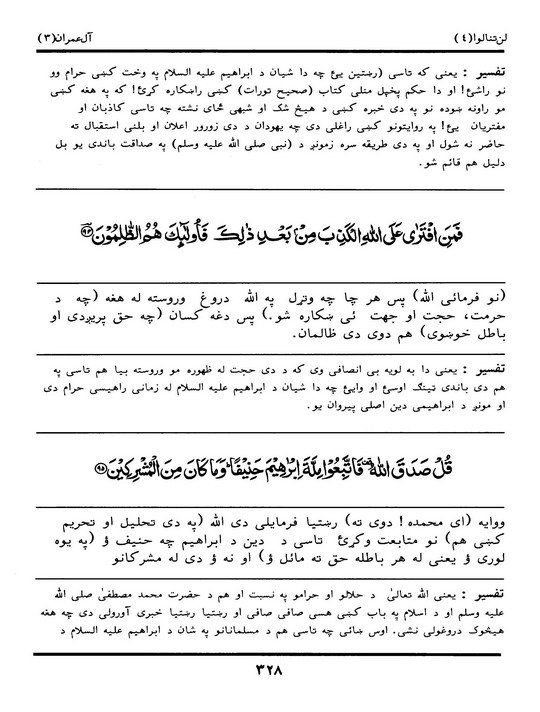 لن تنالوا(٤) آل عمران(٣)
تفسیر : یعنی که تاسی (رښتین یئ چه دا شیان د ابراهیم علیه السلام په وخت کښی حرام وو
نو راشئ! او دا حکم پخپل منلی کتاب (صحیح تورات) کښی راښکاره کړئ! که په هغه کښی
مو راونه ښوده نو په دی خبره کښی د هیڅ شک او شبهی ځای نشته چه تاسی کاذبان او
مفتریان یئ! په روایتونو کښی راغلی دی چه یهودان د دی زورور اعلان او بلنی استقبال ته
حاضر نه شول او په دی طریقه سره زمونږ د (نبی صلی الله علیه وسلم) په صداقت باندی یو بل
دلیل هم قائم شو.
فَمَنِ افْتَرٰى عَلَى اللّٰهِ الْكَذِبَ مِنْۢ بَعْدِ ذٰلِكَ فَأُولٰٓئِكَ هُمُ الظّٰلِمُوْنَ ﴿٩٤﴾
(نو فرمائی الله) پس هر چا چه وتړل په الله دروغ وروسته له هغه (چه د
حرمت، حجت او جهت ئی ښکاره شو.) پس دغه کسان (چه حق پریږدی او
باطل خوښوی) هم دوی دی ظالمان.
تفسیر : یعنی دا به لویه بی انصافی وی که د دی حجت له ظهوره مو وروسته بیا هم تاسی په
هم دی باندی ټینګ اوسئ او وایئ چه دا شیان د ابراهیم علیه السلام له زمانی راهیسی حرام دی
او مونږ د ابراهیمی دین اصلی پیروان یو.
قُلْ صَدَقَ اللّٰهُ فَاتَّبِعُوْا مِلَّةَ اِبْرٰهِيْمَ حَنِيْفًا وَمَا كَانَ مِنَ الْمُشْرِكِيْنَ ﴿٩٥﴾
ووایه (ای محمده! دوی ته) رښتیا فرمایلی دی الله (په دی تحلیل او تحریم
کښی هم) نو متابعت وکړئ تاسی د دین د ابراهیم چه حنیف ؤ (په یوه
لوری ؤ یعنی له هر باطله حق ته مائل ؤ) او نه ؤ دی له مشرکانو
تفسیر : یعنی الله تعالیٰ د حلالو او حرامو په نسبت او هم د حضرت محمد مصطفیٰ صلی الله
علیه وسلم او د اسلام په باب کښی هسی صافی صافی او رښتیا رښتیا خبری آورولی دی چه هغه
هیڅوک دروغولی نشی. اوس ښائی چه تاسی هم د مسلمانانو په شان د ابراهیم علیه السلام د
٣٢٨